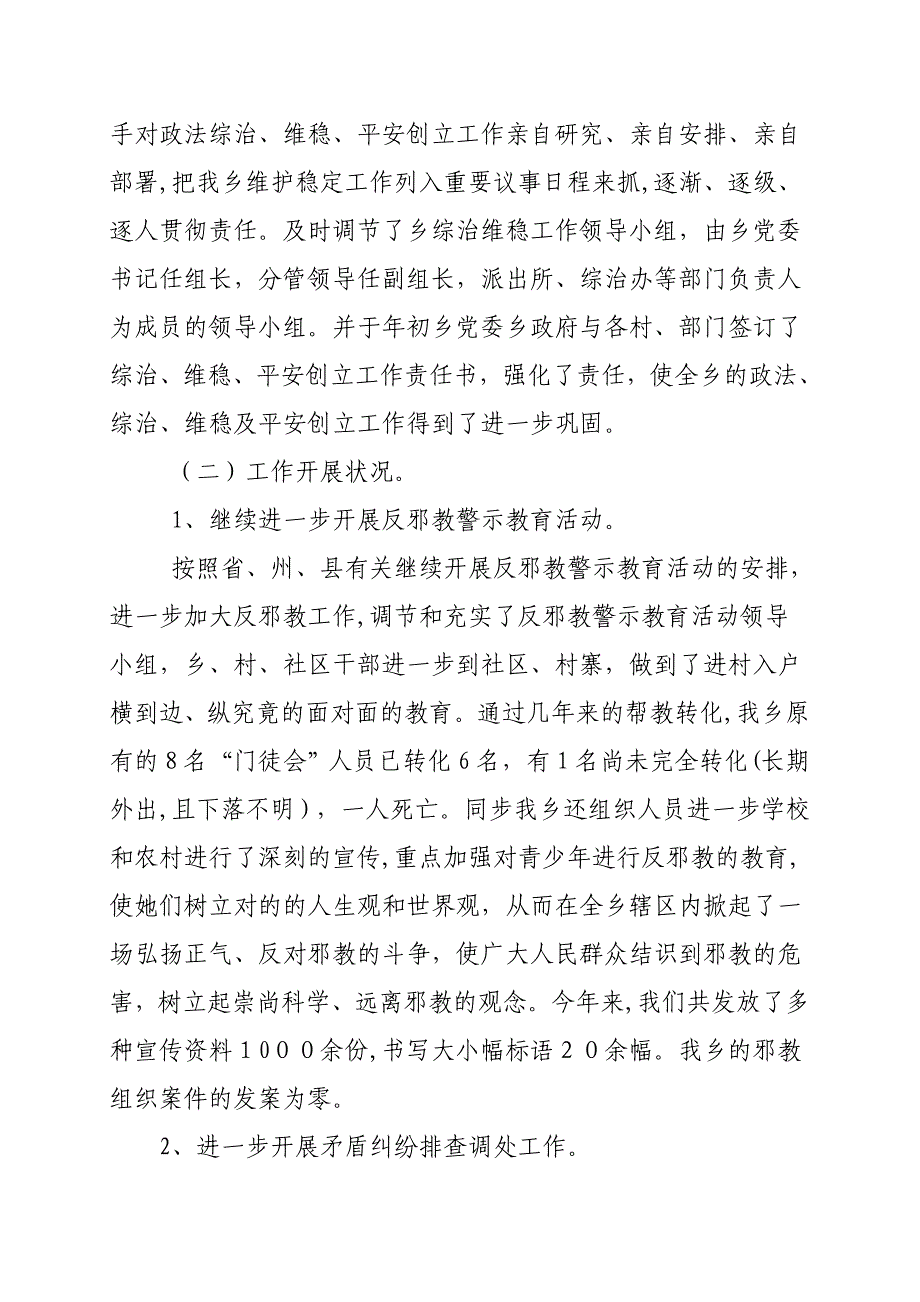 手对政法综治、维稳、平安创立工作亲自研究、亲自安排、亲自
部署,把我乡维护稳定工作列入重要议事日程来抓,逐渐、逐级、
逐人贯彻责任。及时调节了乡综治维稳工作领导小组，由乡党委
书记任组长，分管领导任副组长，派出所、综治办等部门负责人
为成员的领导小组。并于年初乡党委乡政府与各村、部门签订了
综治、维稳、平安创立工作责任书，强化了责任，使全乡的政法、
综治、维稳及平安创立工作得到了进一步巩固。
（二）工作开展状况。
1、继续进一步开展反邪教警示教育活动。
按照省、州、县有关继续开展反邪教警示教育活动的安排，
进一步加大反邪教工作,调节和充实了反邪教警示教育活动领导
小组，乡、村、社区干部进一步到社区、村寨，做到了进村入户
横到边、纵究竟的面对面的教育。通过几年来的帮教转化,我乡原
有的8名“门徒会”人员已转化6名，有1名尚未完全转化(长期
外出,且下落不明），一人死亡。同步我乡还组织人员进一步学校
和农村进行了深刻的宣传,重点加强对青少年进行反邪教的教育,
使她们树立对的的人生观和世界观，从而在全乡辖区内掀起了一
场弘扬正气、反对邪教的斗争，使广大人民群众结识到邪教的危
害，树立起崇尚科学、远离邪教的观念。今年来,我们共发放了多
种宣传资料1０００余份,书写大小幅标语２０余幅。我乡的邪教
组织案件的发案为零。
2、进一步开展矛盾纠纷排查调处工作。